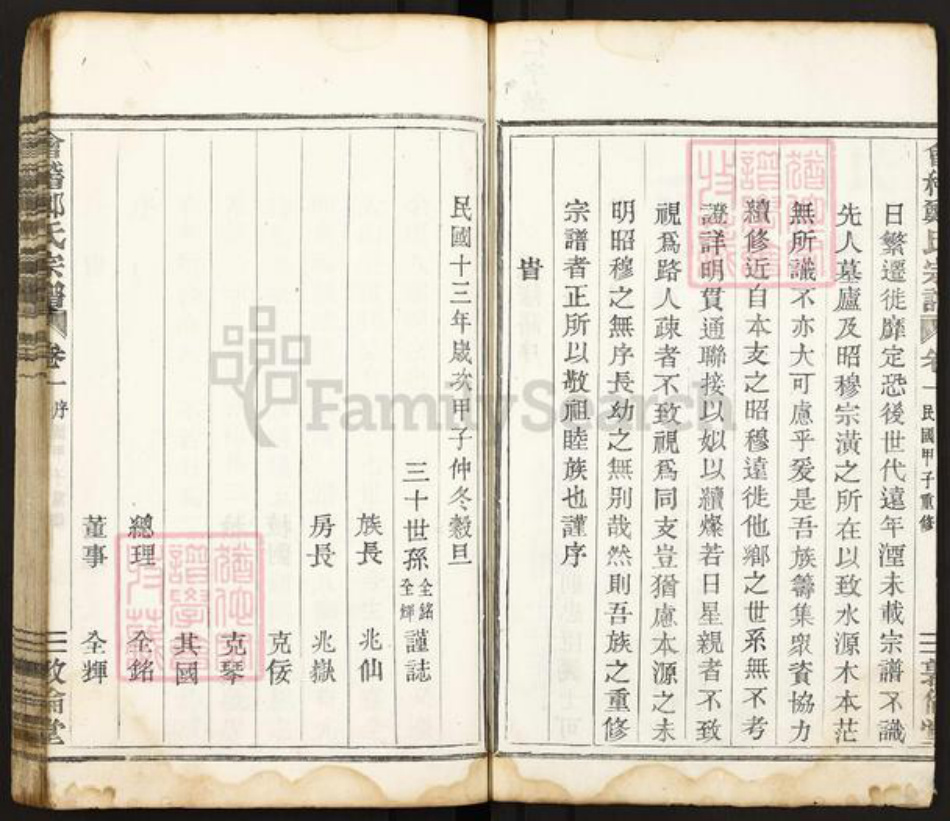 日繁遷徙靡定恐後世代遠年湮未載宗譜不識
先人墓廬及昭穆宗潢之所在以致水源木本茫
無所識不亦大可慮乎爰是吾族籌集衆資協力
續修近自本支之昭穆遠徙他鄉之世系無不考
證詳明貫通聯接以姒以續燦若日星親者不致
視爲路人疎者不致視爲同支豈猶慮本源之未
明昭穆之無序長幼之無别哉然則吾族之重修
宗譜者正所以敬祖睦族也謹序
旹
民國甲子重修
民國十三年歲次甲子仲冬穀旦
三十世孫全銘全輝謹誌
族長 兆仙
房長 兆嶽
克佞
克琴
其國
總理 全銘
董事 全輝
氏宗譜 卷一 序
二
FamilySearch